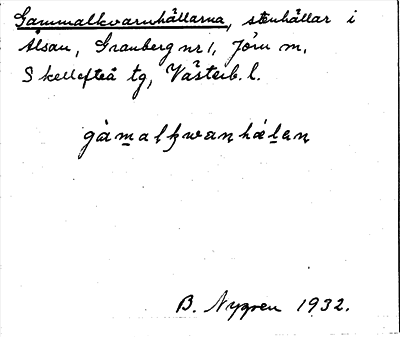 Gammalkvarnhällarna, stenhällar i
Åsan, Granberg nr 1, Jörn sn,
Skellefteå tg, Västerb. l.
gàmalkwaṇhæḷaṇ
B. Nygren 1932.